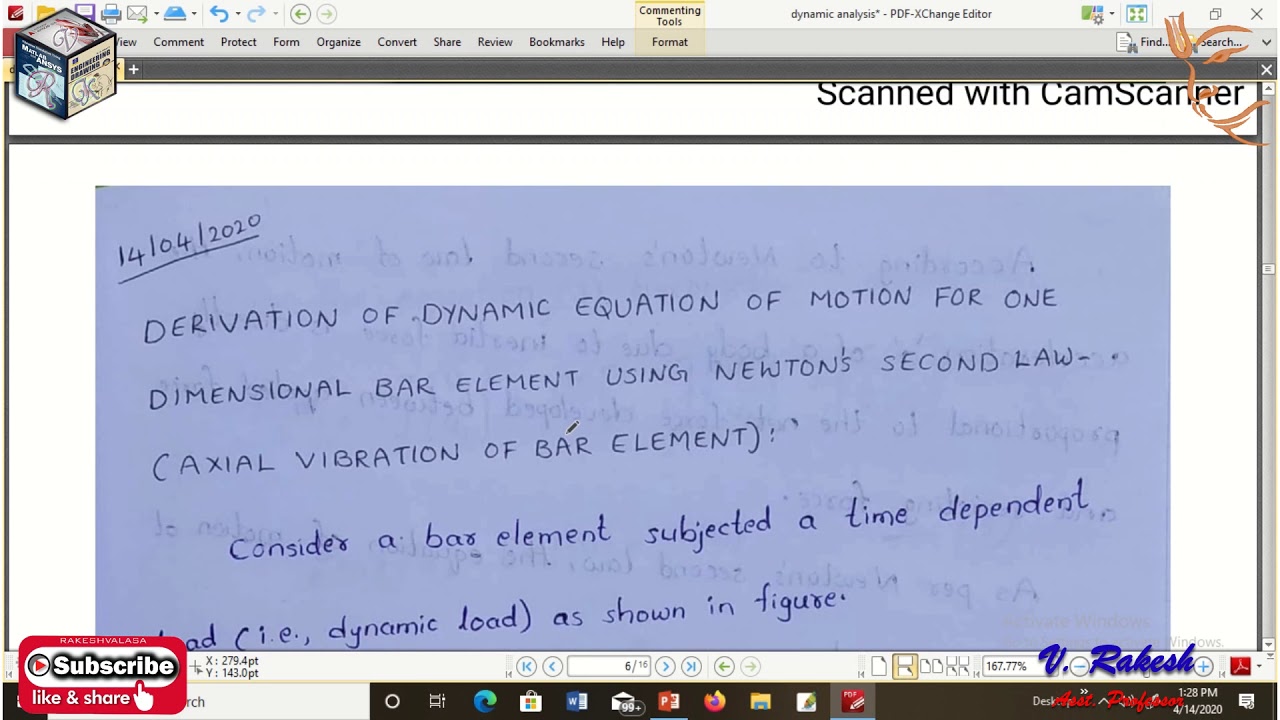 Commenting
Tools
dynamic analysis* - PDF-XChange Editor
View Comment Protect Form Organize Convert Share Review Bookmarks Help Format Find... Search...
MATLAB
ANSYS
ENGINEERING
DRAWING
Scanned with CamScanner
14/04/2020
DERIVATION OF DYNAMIC EQUATION OF MOTION FOR ONE
DIMENSIONAL BAR ELEMENT USING NEWTON'S SECOND LAW-
(AXIAL VIBRATION OF BAR ELEMENT):
Consider a bar element subjected a time dependent
load (i.e., dynamic load) as shown in figure.
Activate Windows
RAKESHVALASA
Subscribe
like & share
X: 279.4pt
Y: 143.0pt
6 / 16
167.77%
V. Rakesh
Asst. Professor
99+
1:28 PM
4/14/2020